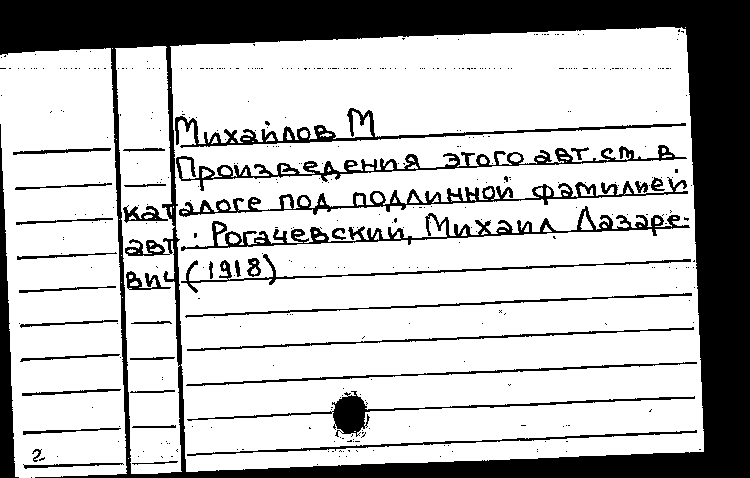 Михайлов М
Произведения этого авт. см. в
каталоге под подлинной фамилией
авт.: Рогачевский, Михаил Лазаре-
вич (1918)
2